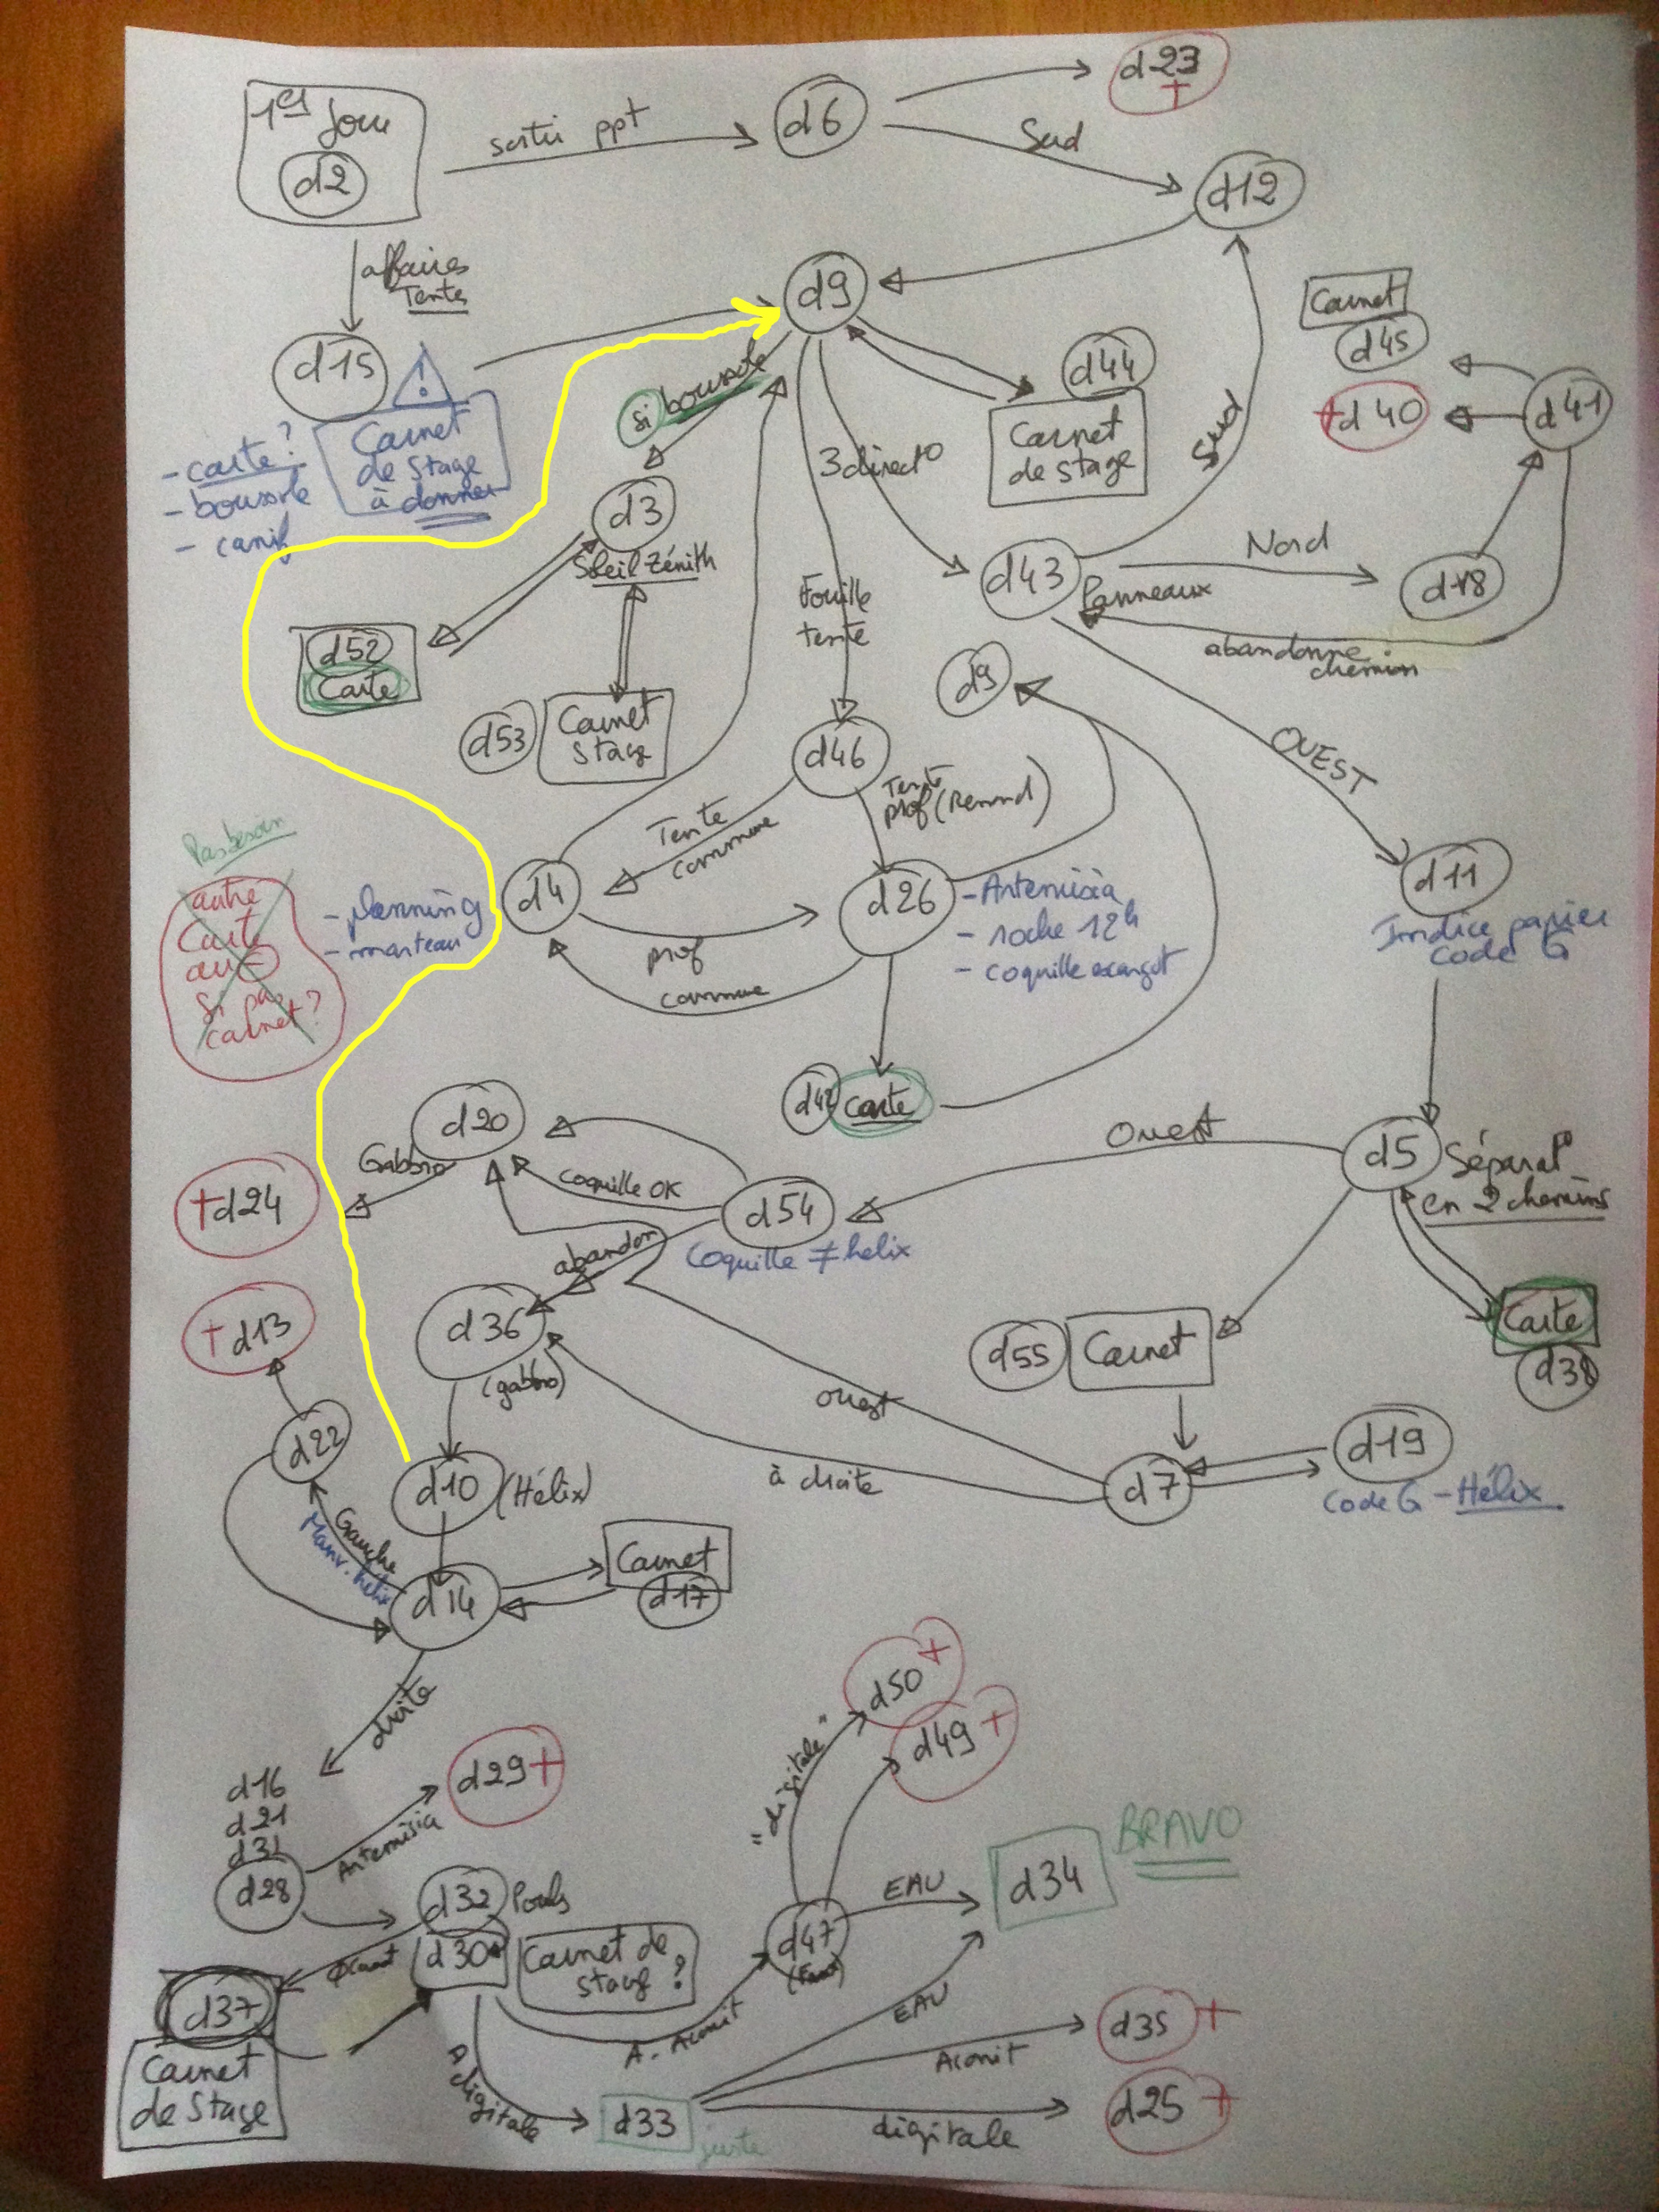 1er Jour
d2
sortir ppt
d6
d23
+
Sud
d12
affaires
Tentes
d15
!
- carte ?
- boussole
- canif
Carnet
de Stage
à donner
d9
si boussole
d3
Soleil Zénith
d52
Carte
d53
Carnet
Stage
3 direct°
d44
Carnet
de stage
Carnet
d45
+d40
d41
Sud
d43
Panneaux
Nord
d18
abandonne
chemin
Fouille
tente
d9
d46
Tente
commune
Tente
prof (Renaud)
OUEST
d11
Indice papier
Code G
Pas besoin
autre
Carte
au
Si pas
carnet ?
- planning
- marteau
d4
prof
commune
d26
- Artemisia
- roche 12h
- coquille escargot
d42
Carte
d20
Gabbro
+d24
Coquille OK
d54
Coquille ≠ helix
Ouest
d5
Séparat°
en 2 chemins
Carte
d38
abandon
d36
(gabbro)
+d13
d22
d55
Carnet
ouest
à droite
d7
d19
Code G - Hélix
d10 (Hélix)
Gauche
Manv. helix
d14
Carnet
d17
droite
d16
d21
d31
d28
Artemisia
d29+
d32
Pouls
d30
Carnet de
stage ?
d37
Carnet
de Stage
A. Aconit
A digitale
d33
juste
d47
"digitale"
d50+
d49+
EAU
d34
BRAVO
EAU
Aconit
d35+
digitale
d25+